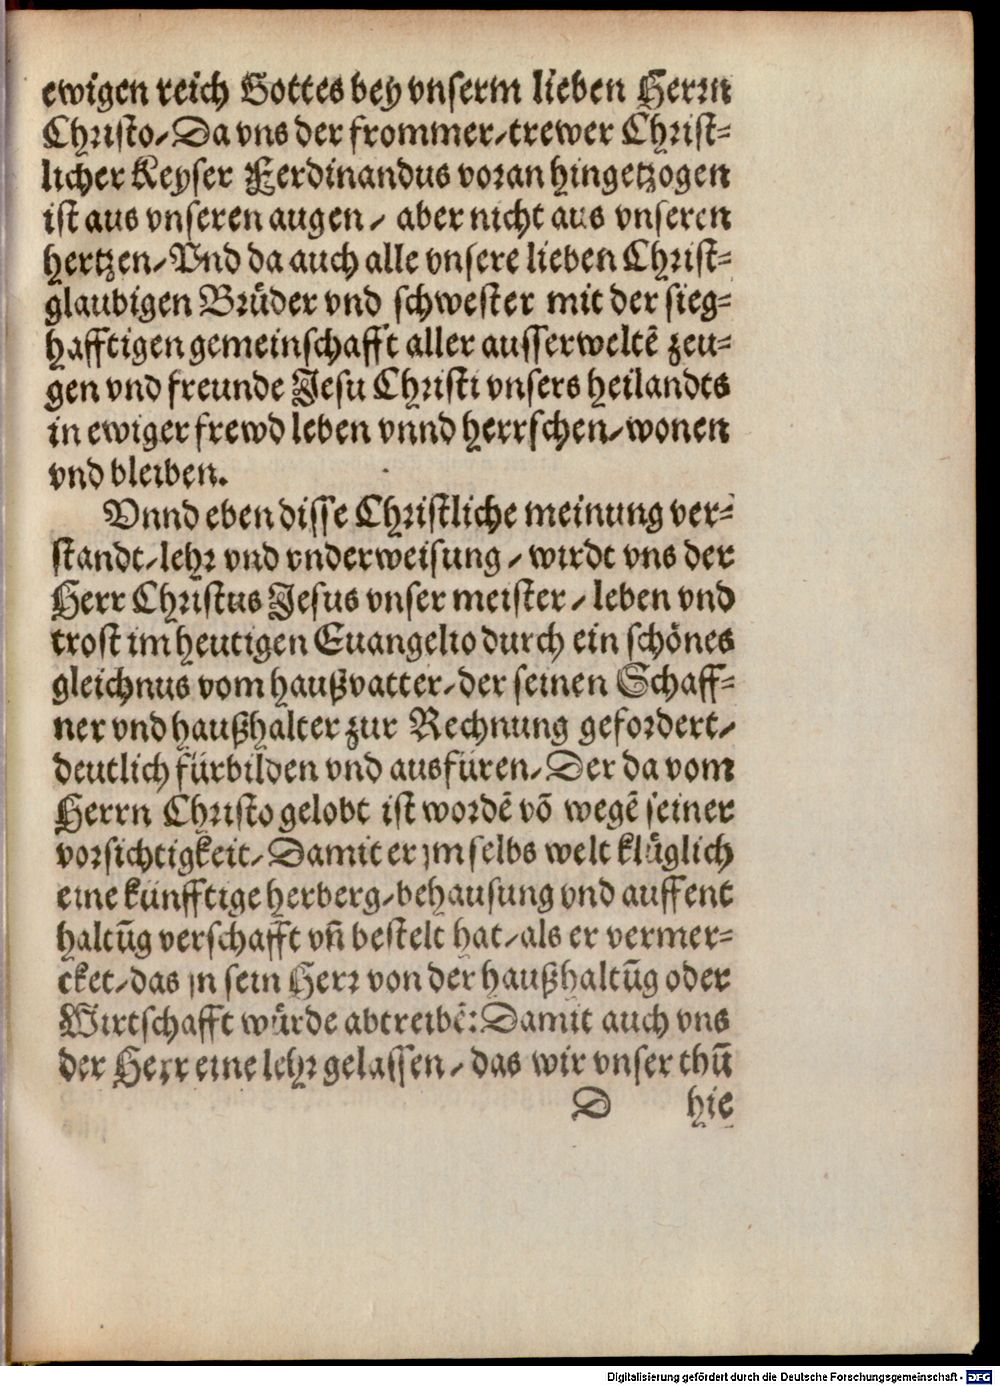 ewigen reich Gottes bey vnserm lieben Herrn
Christo/ Da vns der frommer/ trewer Christ-
licher Keyser Ferdinandus voran hingetzogen
ist aus vnseren augen/ aber nicht aus vnseren
hertzen/ Vnd da auch alle vnsere lieben Christ-
glaubigen Brüder vnd schwester mit der sieg-
hafftigen gemeinschafft aller ausserweltē zeu-
gen vnd freunde Jesu Christi vnsers heilandts
in ewiger frewd leben vnnd herrschen/ wonen
vnd bleiben.
Vnnd eben disse Christliche meinung ver-
standt/ lehr vnd vnderweisung/ wirdt vns der
Herr Christus Jesus vnser meister/ leben vnd
trost im heutigen Euangelio durch ein schönes
gleichnus vom haußvatter/ der seinen Schaff-
ner vnd haußhalter zur Rechnung gefordert/
deutlich fürbilden vnd ausfüren/ Der da vom
Herrn Christo gelobt ist wordē vō wegē seiner
vorsichtigkeit/ Damit er jm selbs welt klüglich
eine künfftige herberg/ behausung vnd auffent
haltūg verschafft vn̄ bestelt hat/ als er vermer-
cket/ das jn sein Herr von der haußhaltūg oder
Wirtschafft würde abtreibē: Damit auch vns
der Herr eine lehr gelassen/ das wir vnser thū
D hie
Digitalisierung gefördert durch die Deutsche Forschungsgemeinschaft - DFG